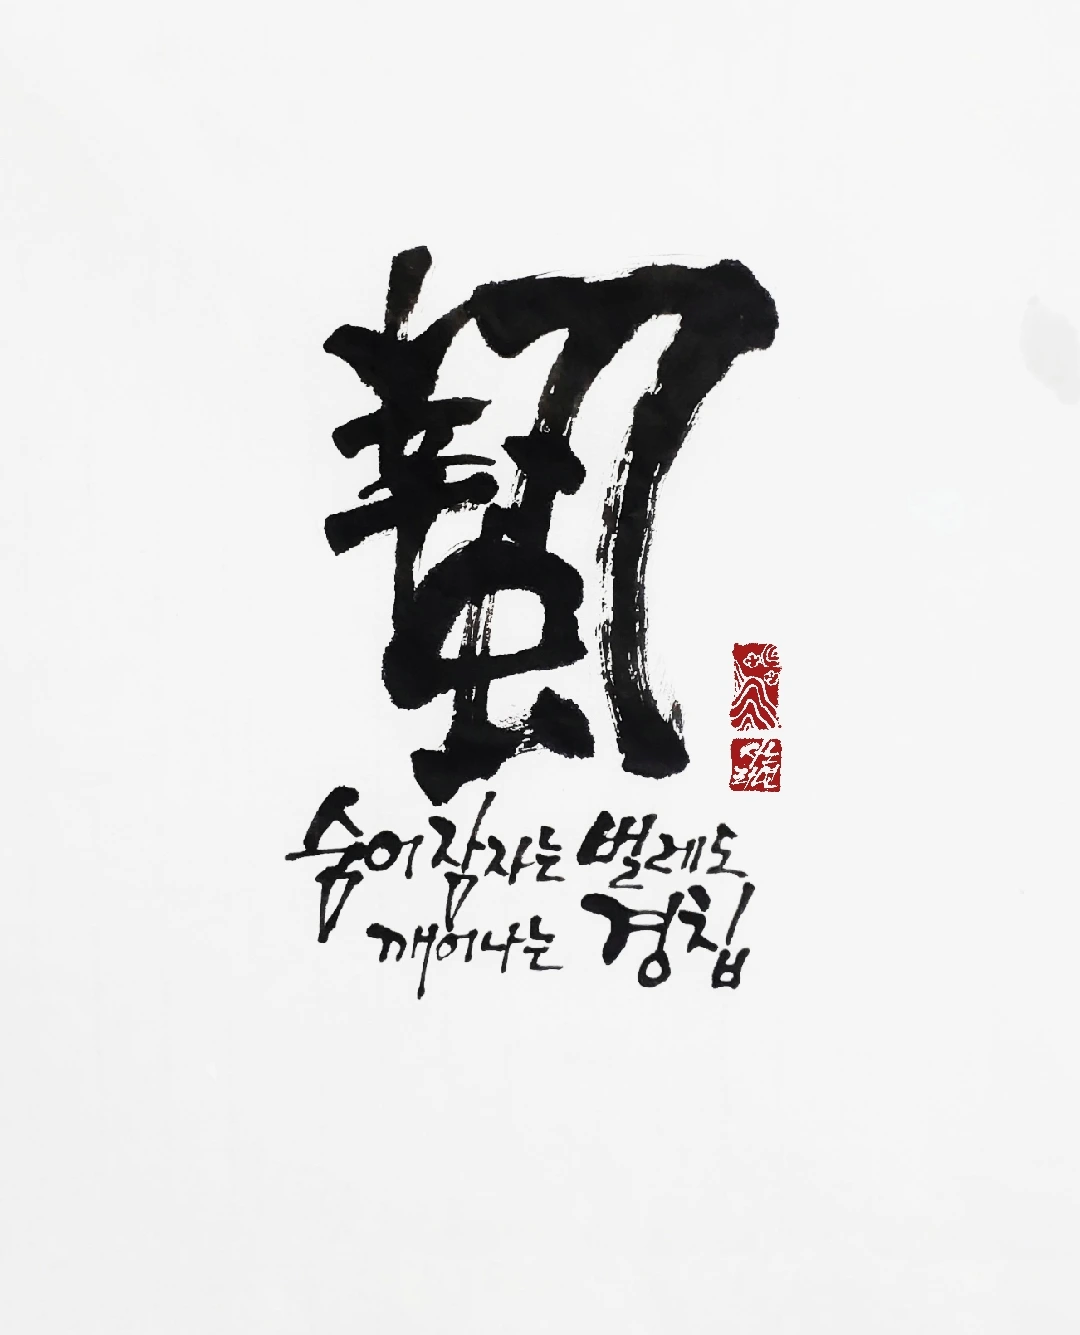 蟄
숨어 잠자는 벌레도
깨어나는 경칩